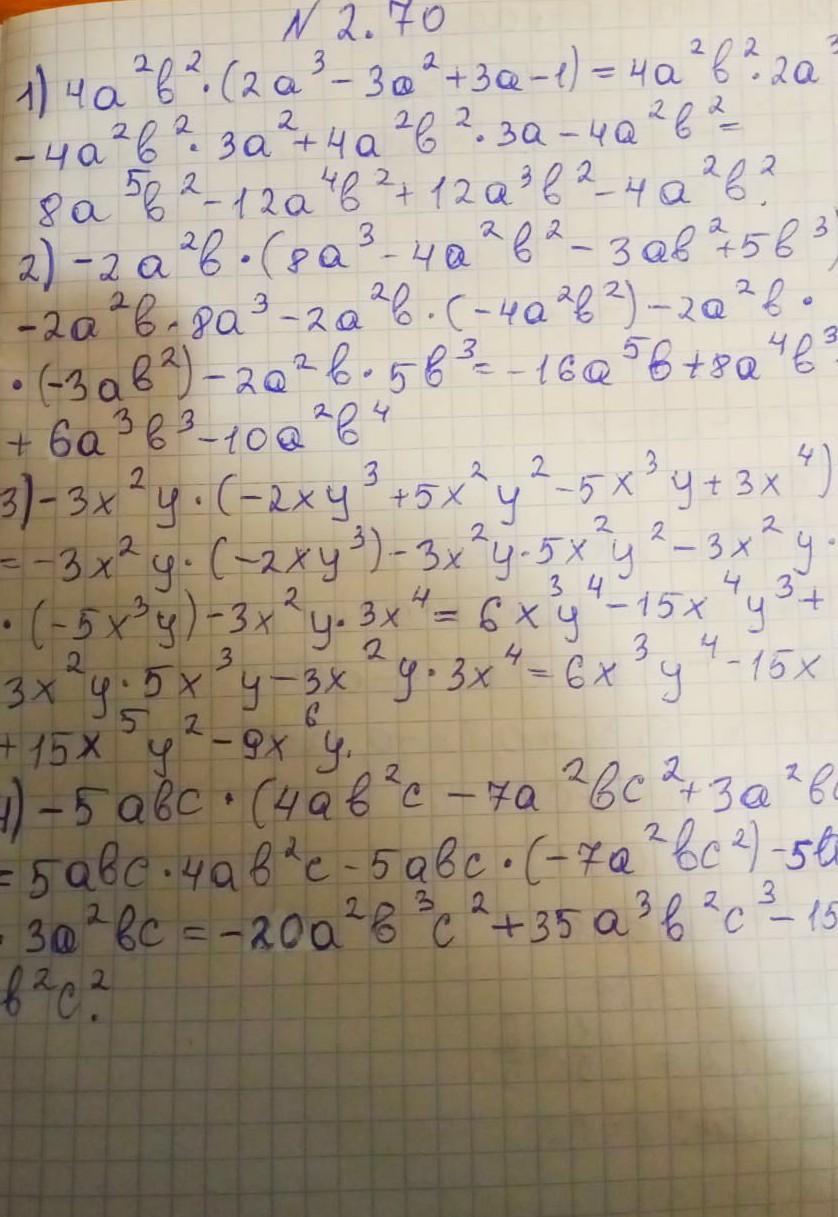 N 2.70
1) 4a²b²·(2a³-3a²+3a-1)=4a²b²·2a³
-4a²b²·3a²+4a²b²·3a-4a²b²=
8a⁵b²-12a⁴b²+12a³b²-4a²b².
2) -2a²b·(8a³-4a²b²-3ab²+5b³)
-2a²b·8a³-2a²b·(-4a²b²)-2a²b·
·(-3ab²)-2a²b·5b³=-16a⁵b+8a⁴b³
+6a³b³-10a²b⁴
3) -3x²y·(-2xy³+5x²y²-5x³y+3x⁴)
=-3x²y·(-2xy³)-3x²y·5x²y²-3x²y·
·(-5x³y)-3x²y·3x⁴=6x³y⁴-15x⁴y³+
3x²y·5x³y-3x²y·3x⁴=6x³y⁴-15x
+15x⁵y²-9x⁶y.
4) -5abc·(4ab²c-7a²bc²+3a²bc
=5abc·4ab²c-5abc·(-7a²bc²)-5a
·3a²bc=-20a²b³c²+35a³b²c³-15
b²c².